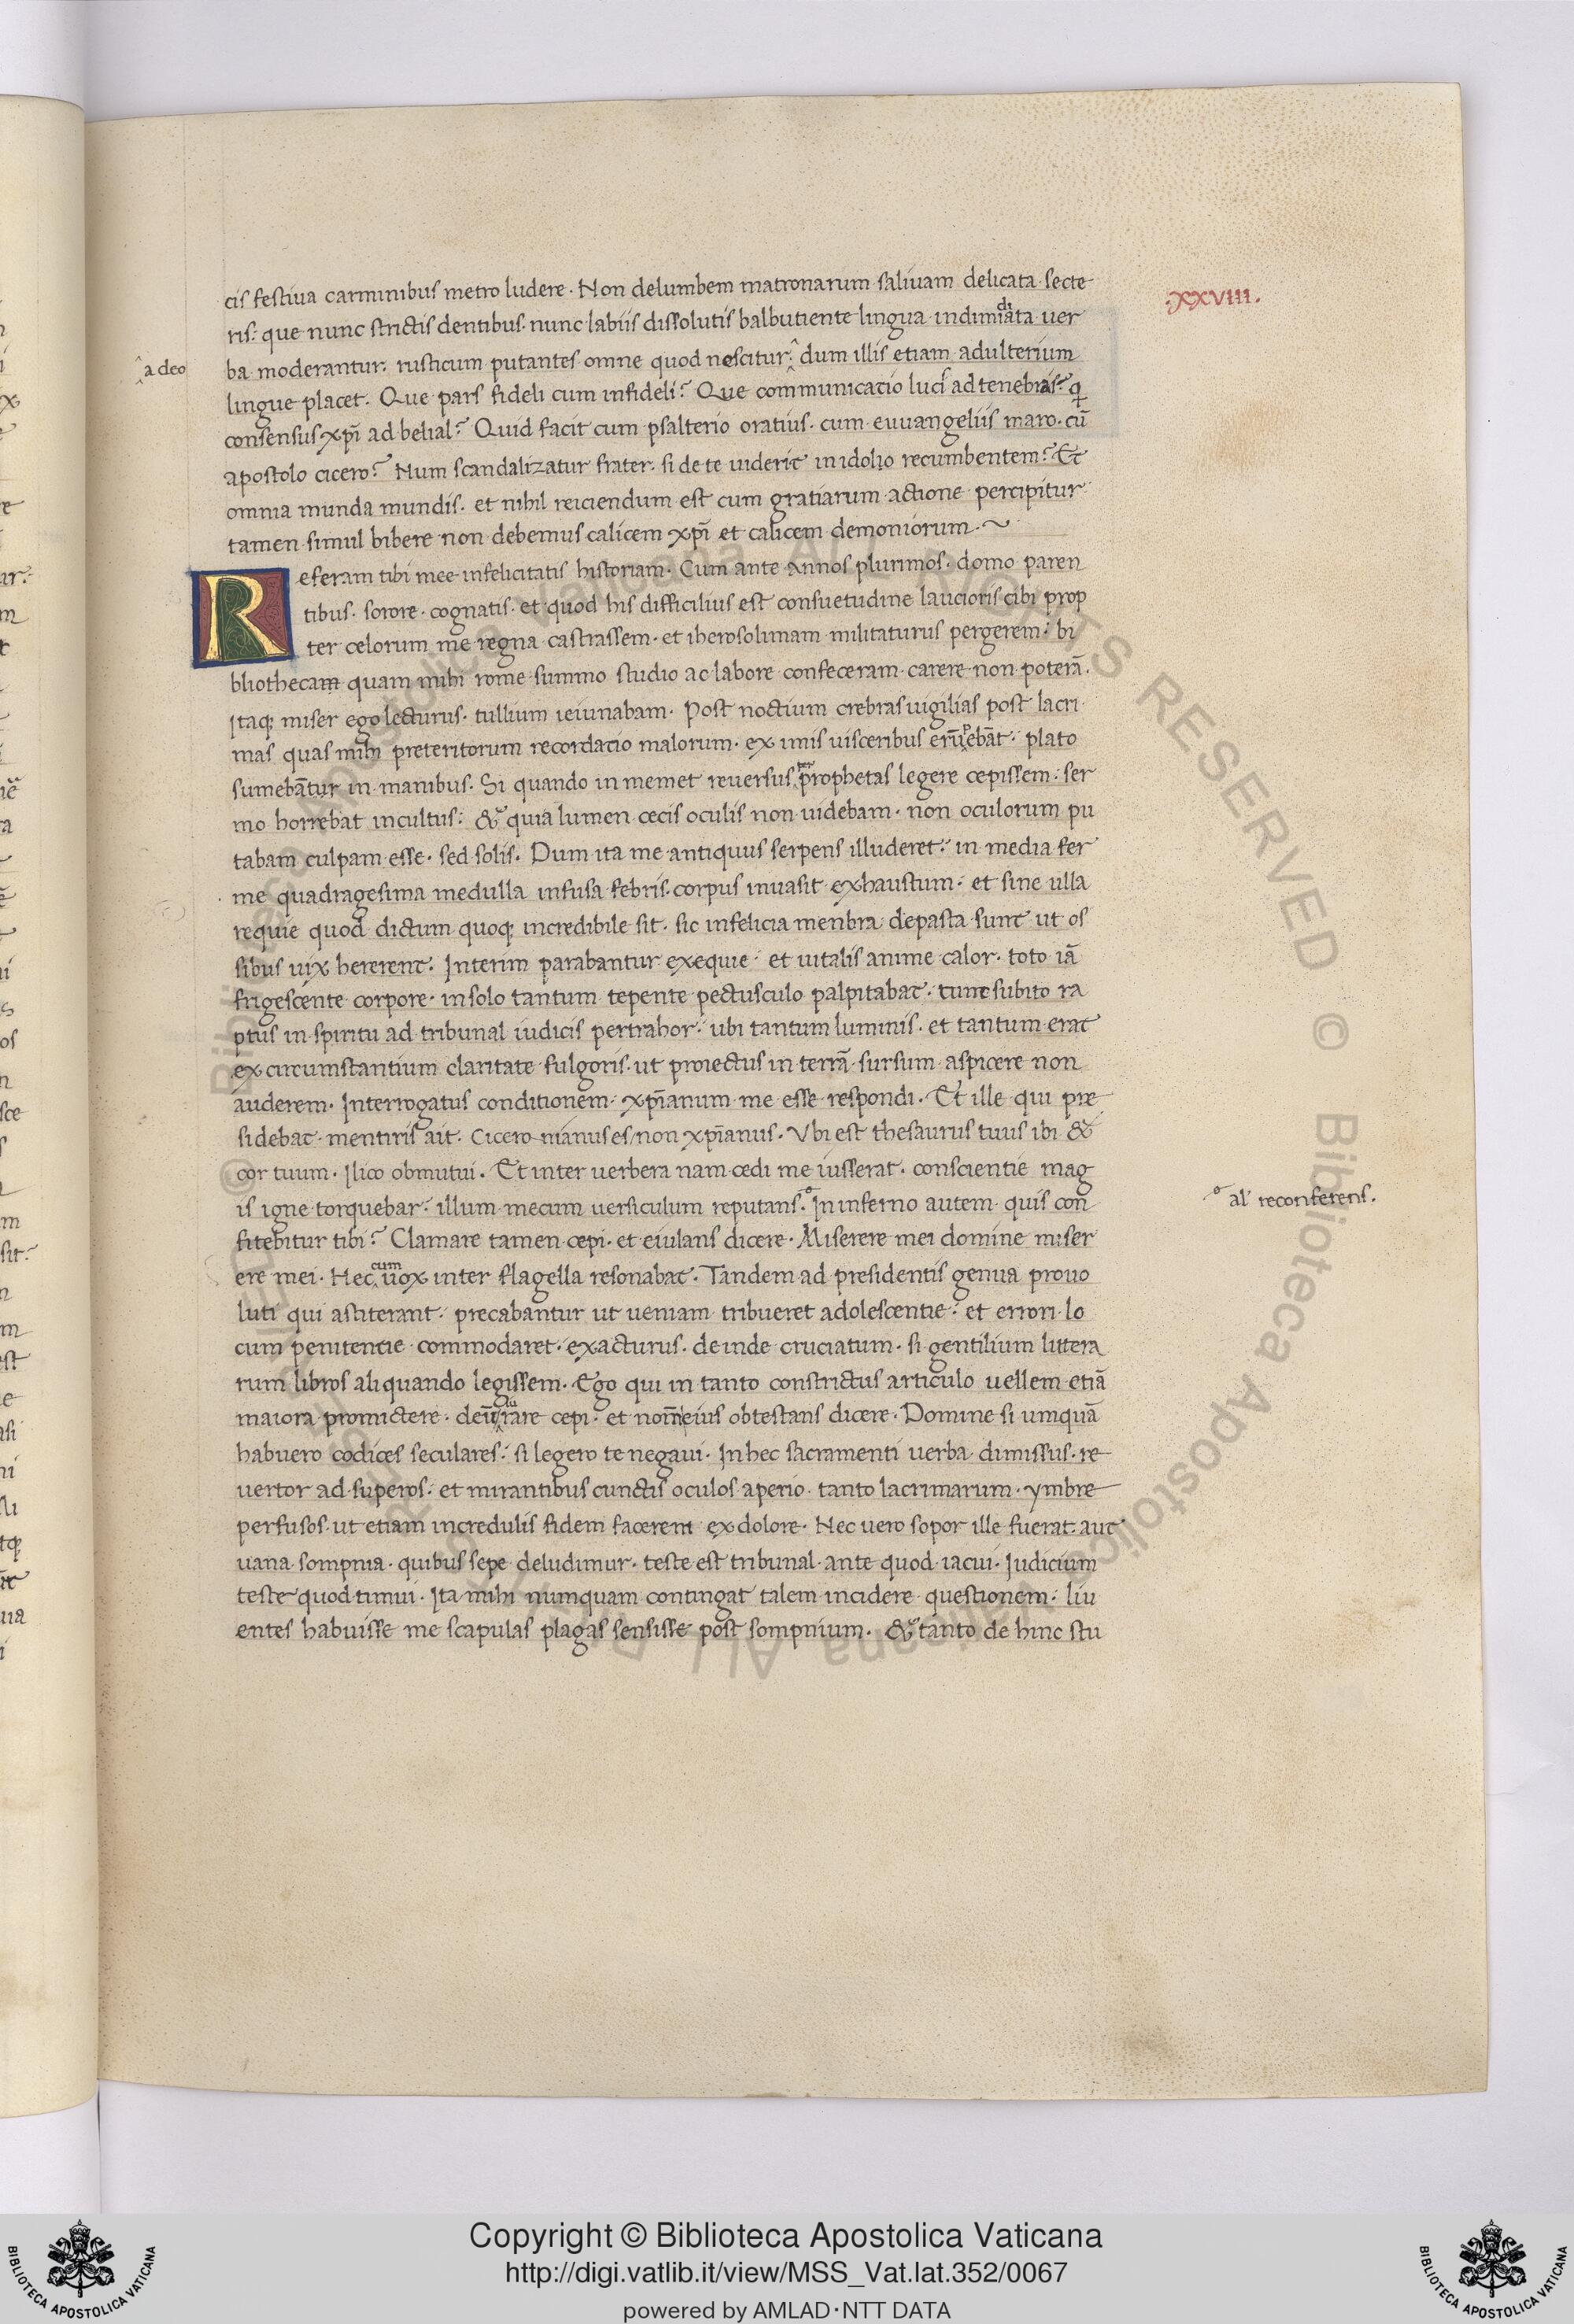 .XXVIII.
cis festiua carminibus metro ludere. Non delumbem matronarum saliuam delicata secte
ris: que nunc strictis dentibus. nunc labiis dissolutis balbutiente lingua indimidiata uer
ba moderantur. rusticum putantes omne quod nescitur: dum illis etiam adulterium
a deo
lingue placet. Que pars fideli cum infideli? Que communicatio luci ad tenebras? q̄
consensus xp̄i ad belial? Quid facit cum psalterio oratius. cum euuangeliis maro. cū
apostolo cicero? Num scandalizatur frater. si de te uiderit in idolio recumbentem? Et
omnia munda mundis. et nihil reiciendum est cum gratiarum actione percipitur
tamen simul bibere non debemus calicem xp̄i et calicem demoniorum. ~
Referam tibi mee infelicitatis historiam. Cum ante annos plurimos. domo paren
tibus. sorore. cognatis. et quod his difficilius est consuetudine laucioris cibi prop
ter celorum me regna castrassem. et iherosolimam militaturus pergerem: bi
bliothecam quam mihi rome summo studio ac labore confeceram carere non poterā.
Itaq; miser ego lecturus. tullium ieiunabam. Post noctium crebras uigilias post lacri
mas quas mihi preteritorum recordatio malorum. ex imis uisceribus eruebāt: plato
sumebatur in manibus. Si quando in memet reuersus prophetas legere cepissem: ser
mo horrebat incultus: & quia lumen cecis oculis non uidebam. non oculorum pu
tabam culpam esse. sed solis. Dum ita me antiquus serpens illuderet: in media fer
me quadragesima medulla infusa febris. corpus inuasit exhaustum: et sine ulla
requie quod dictum quoq; incredibile sit. sic infelicia menbra depasta sunt ut os
sibus uix hererent. Interim parabantur exequie: et uitalis anime calor. toto iā
frigescente corpore. in solo tantum tepente pectusculo palpitabat. tunc subito ra
ptus in spiritu ad tribunal iudicis pertrahor: ubi tantum luminis. et tantum erat
ex circumstantium claritate fulgoris. ut proiectus in terrā sursum aspicere non
auderem. Interrogatus conditionem: xp̄ianum me esse respondi. Et ille qui pre
sidebat mentiris ait. Ciceronianus es/non xp̄ianus. Vbi est thesaurus tuus ibi &
cor tuum. Ilico obmutui. Et inter uerbera nam cedi me iusserat. conscientie mag
is igne torquebar: illum mecum uersiculum reputans. In inferno autem quis con
al' reconferens.
fitebitur tibi? Clamare tamen cepi. et eiulans dicere. Miserere mei domine miser
ere mei. Hec cum uox inter flagella resonabat. Tandem ad presidentis genua prouo
luti qui astiterant: precabantur ut ueniam tribueret adolescentie: et errori lo
cum penitentie commodaret. exacturus. deinde cruciatum. si gentilium littera
rum libros aliquando legissem. Ego qui in tanto constrictus articulo uellem etiā
maiora promictere. deiurare cepi. et nom̄ eius obtestans dicere. Domine si umquā
habuero codices seculares: si legero te negaui. In hec sacramenti uerba dimissus. re
uertor ad superos: et mirantibus cunctis oculos aperio. tanto lacrimarum. ymbre
perfusos. ut etiam incredulis fidem facerent ex dolore. Nec uero sopor ille fuerat. aut
uana sompnia. quibus sepe deludimur. teste est tribunal. ante quod iacui. Iudicium
teste quod timui. Ita mihi numquam contingat talem incidere questionem: liu
entes habuisse me scapulas plagas sensisse post sompnium. & tanto de hinc stu
Copyright © Biblioteca Apostolica Vaticana
http://digi.vatlib.it/view/MSS_Vat.lat.352/0067
powered by AMLAD·NTT DATA
BIBLIOTECA APOSTOLICA VATICANA
BIBLIOTECA APOSTOLICA VATICANA